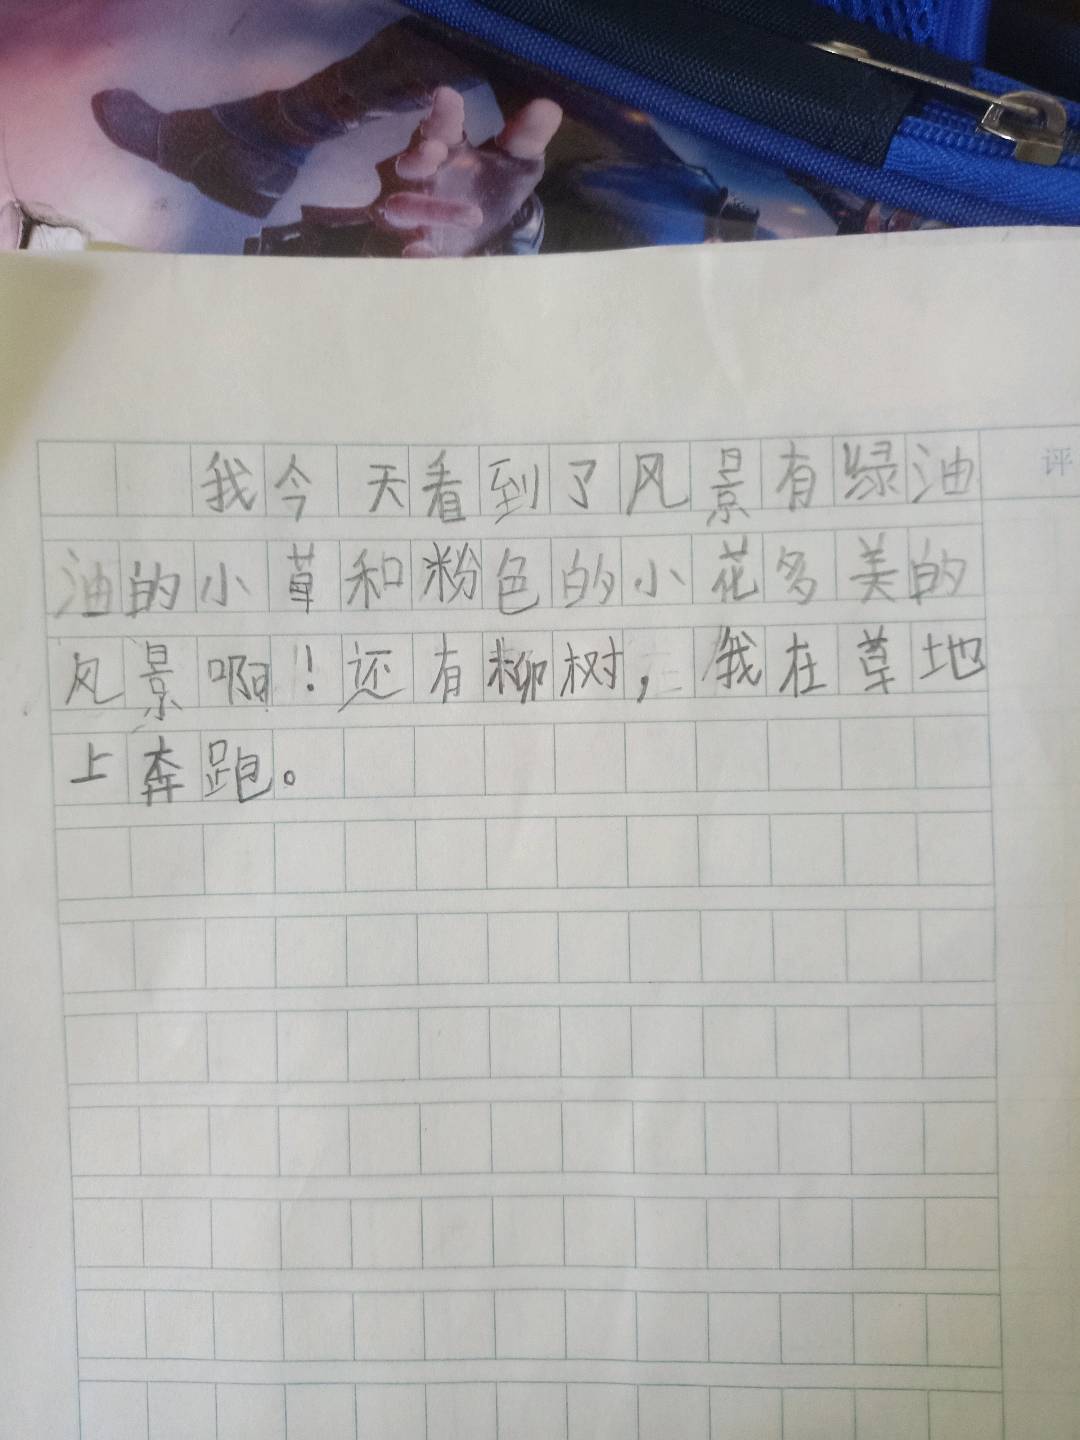 我今天看到了风景有绿油
油的小草和粉色的小花多美的
风景啊!还有柳树,我在草地
上奔跑。
评